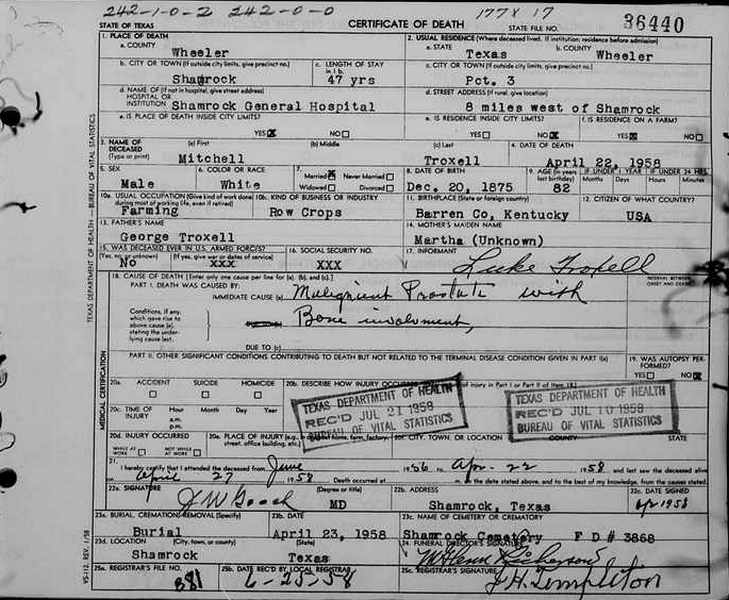 242-1-0-2 242-0-0 177X 17
STATE OF TEXAS CERTIFICATE OF DEATH STATE FILE NO. 36440
1. PLACE OF DEATH 2. USUAL RESIDENCE (Where deceased lived. If institution: residence before admission)
a. COUNTY Wheeler a. STATE Texas b. COUNTY Wheeler
b. CITY OR TOWN (If outside city limits, give precinct no.) c. LENGTH OF STAY in 1 b. c. CITY OR TOWN (If outside city limits, give precinct no.)
Shamrock 47 yrs Pct. 3
d. NAME OF (If not in hospital, give street address) d. STREET ADDRESS (If rural, give location)
HOSPITAL OR
INSTITUTION Shamrock General Hospital 8 miles west of Shamrock
e. IS PLACE OF DEATH INSIDE CITY LIMITS? e. IS RESIDENCE INSIDE CITY LIMITS? f. IS RESIDENCE ON A FARM?
YES X NO YES NO X YES X NO
3. NAME OF DECEASED (a) First (b) Middle (c) Last 4. DATE OF DEATH
(Type or print) Mitchell Troxell April 22, 1958
5. SEX 6. COLOR OR RACE 7. Married X Never Married 8. DATE OF BIRTH 9. AGE (In years last birthday) IF UNDER 1 YEAR IF UNDER 24 HRS.
Months Days Hours Minutes
Male White Widowed Divorced Dec. 20, 1875 82
10a. USUAL OCCUPATION (Give kind of work done during most of working life, even if retired) 10b. KIND OF BUSINESS OR INDUSTRY 11. BIRTHPLACE (State or foreign country) 12. CITIZEN OF WHAT COUNTRY?
Farming Row Crops Barren Co, Kentucky USA
13. FATHER'S NAME 14. MOTHER'S MAIDEN NAME
George Troxell Martha (Unknown)
15. WAS DECEASED EVER IN U.S. ARMED FORCES? 16. SOCIAL SECURITY NO. 17. INFORMANT
(Yes, no, or unknown) (If yes, give war or dates of service)
No XXX XXX Luke Troxell
18. CAUSE OF DEATH [Enter only one cause per line for (a), (b), and (c).] INTERVAL BETWEEN ONSET AND DEATH
PART I. DEATH WAS CAUSED BY:
IMMEDIATE CAUSE (a) Malignient Prostate with
Conditions, if any, which gave rise to above cause (a), stating the underlying cause last. Bone involvment,
DUE TO (c)
PART II. OTHER SIGNIFICANT CONDITIONS CONTRIBUTING TO DEATH BUT NOT RELATED TO THE TERMINAL DISEASE CONDITION GIVEN IN PART I(a) 19. WAS AUTOPSY PERFORMED?
YES NO X
20a. ACCIDENT SUICIDE HOMICIDE 20b. DESCRIBE HOW INJURY OCCURRED injury in Part I or Part II of item 18.)
20c. TIME OF INJURY Hour Month Day Year
a.m.
p.m.
TEXAS DEPARTMENT OF HEALTH
REC'D JUL 21 1958
BUREAU OF VITAL STATISTICS
TEXAS DEPARTMENT OF HEALTH
REC'D JUL 10 1958
BUREAU OF VITAL STATISTICS
20d. INJURY OCCURRED 20e. PLACE OF INJURY (e.g., in or about home, farm, factory, street, office building, etc.) 20f. CITY, TOWN, OR LOCATION COUNTY STATE
WHILE AT WORK NOT WHILE AT WORK
21. I hereby certify that I attended the deceased from June 1956 to Apr-22 1958 and last saw the deceased alive
on April 27 1958 Death occurred at m. on the date stated above, and to the best of my knowledge, from the causes stated.
22a. SIGNATURE (Degree or title) 22b. ADDRESS 22c. DATE SIGNED
J W Gooch MD Shamrock, Texas Apr 1958
23a. BURIAL, CREMATION, REMOVAL (Specify) 23b. DATE 23c. NAME OF CEMETERY OR CREMATORY
Burial April 23, 1958 Shamrock Cemetery F D # 3868
23d. LOCATION (City, town, or county) (State) 24. FUNERAL DIRECTOR'S SIGNATURE
Shamrock Texas
25a. REGISTRAR'S FILE NO. 25b. DATE REC'D BY LOCAL REGISTRAR 25c. REGISTRAR'S SIGNATURE
881 6-25-58 J.H. Templeton
TEXAS DEPARTMENT OF HEALTH — BUREAU OF VITAL STATISTICS
MEDICAL CERTIFICATION
VS-112, REV. 1/58